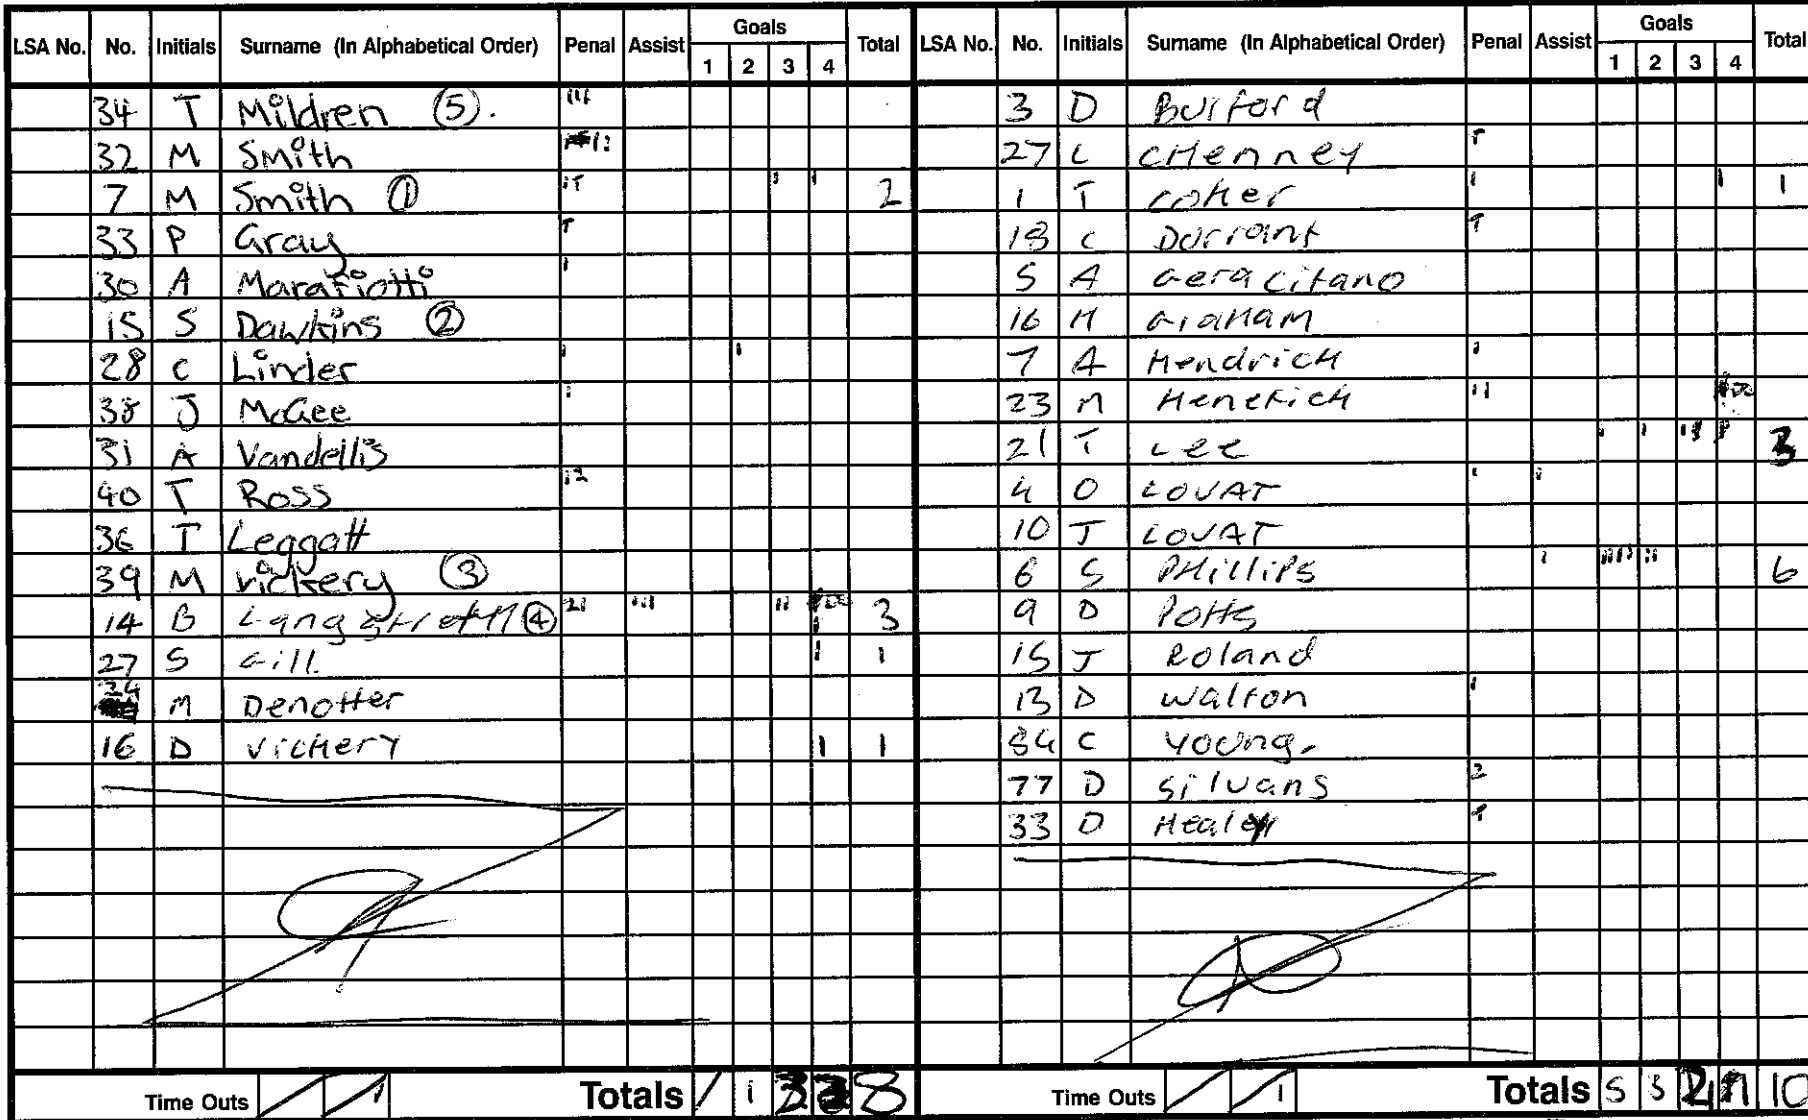 LSA No. No. Initials Surname (In Alphabetical Order) Penal Assist Goals 1 2 3 4 Total
34 T Mildren ⑤.
32 M Smith
7 M Smith ① 2
33 P Gray
30 A Marafiotti
15 S Dawkins ②
28 C Linder
38 J McGee
31 A Vandellis
40 T Ross
36 T Leggatt
39 M Vickery ③
14 B ④ 3
27 S Gill 1 1
24 M Denotter
16 D Vickery 1 1
Time Outs / / 1 Totals / 1 3 8
LSA No. No. Initials Surname (In Alphabetical Order) Penal Assist Goals 1 2 3 4 Total
3 D Burford
27 L CHenney
1 T coHer 1 1
18 C Dorrant
5 A Geracitano
16 H GraHam
7 A HendricH
23 M HenericH
21 T Lee 3
4 O LOVAT
10 J LOVAT
6 S PHilliPs 6
9 D Potts
15 J Roland
13 D Walton
84 C Young.
77 D Silvans
33 D Healey
Time Outs / / 1 Totals 5 3 10